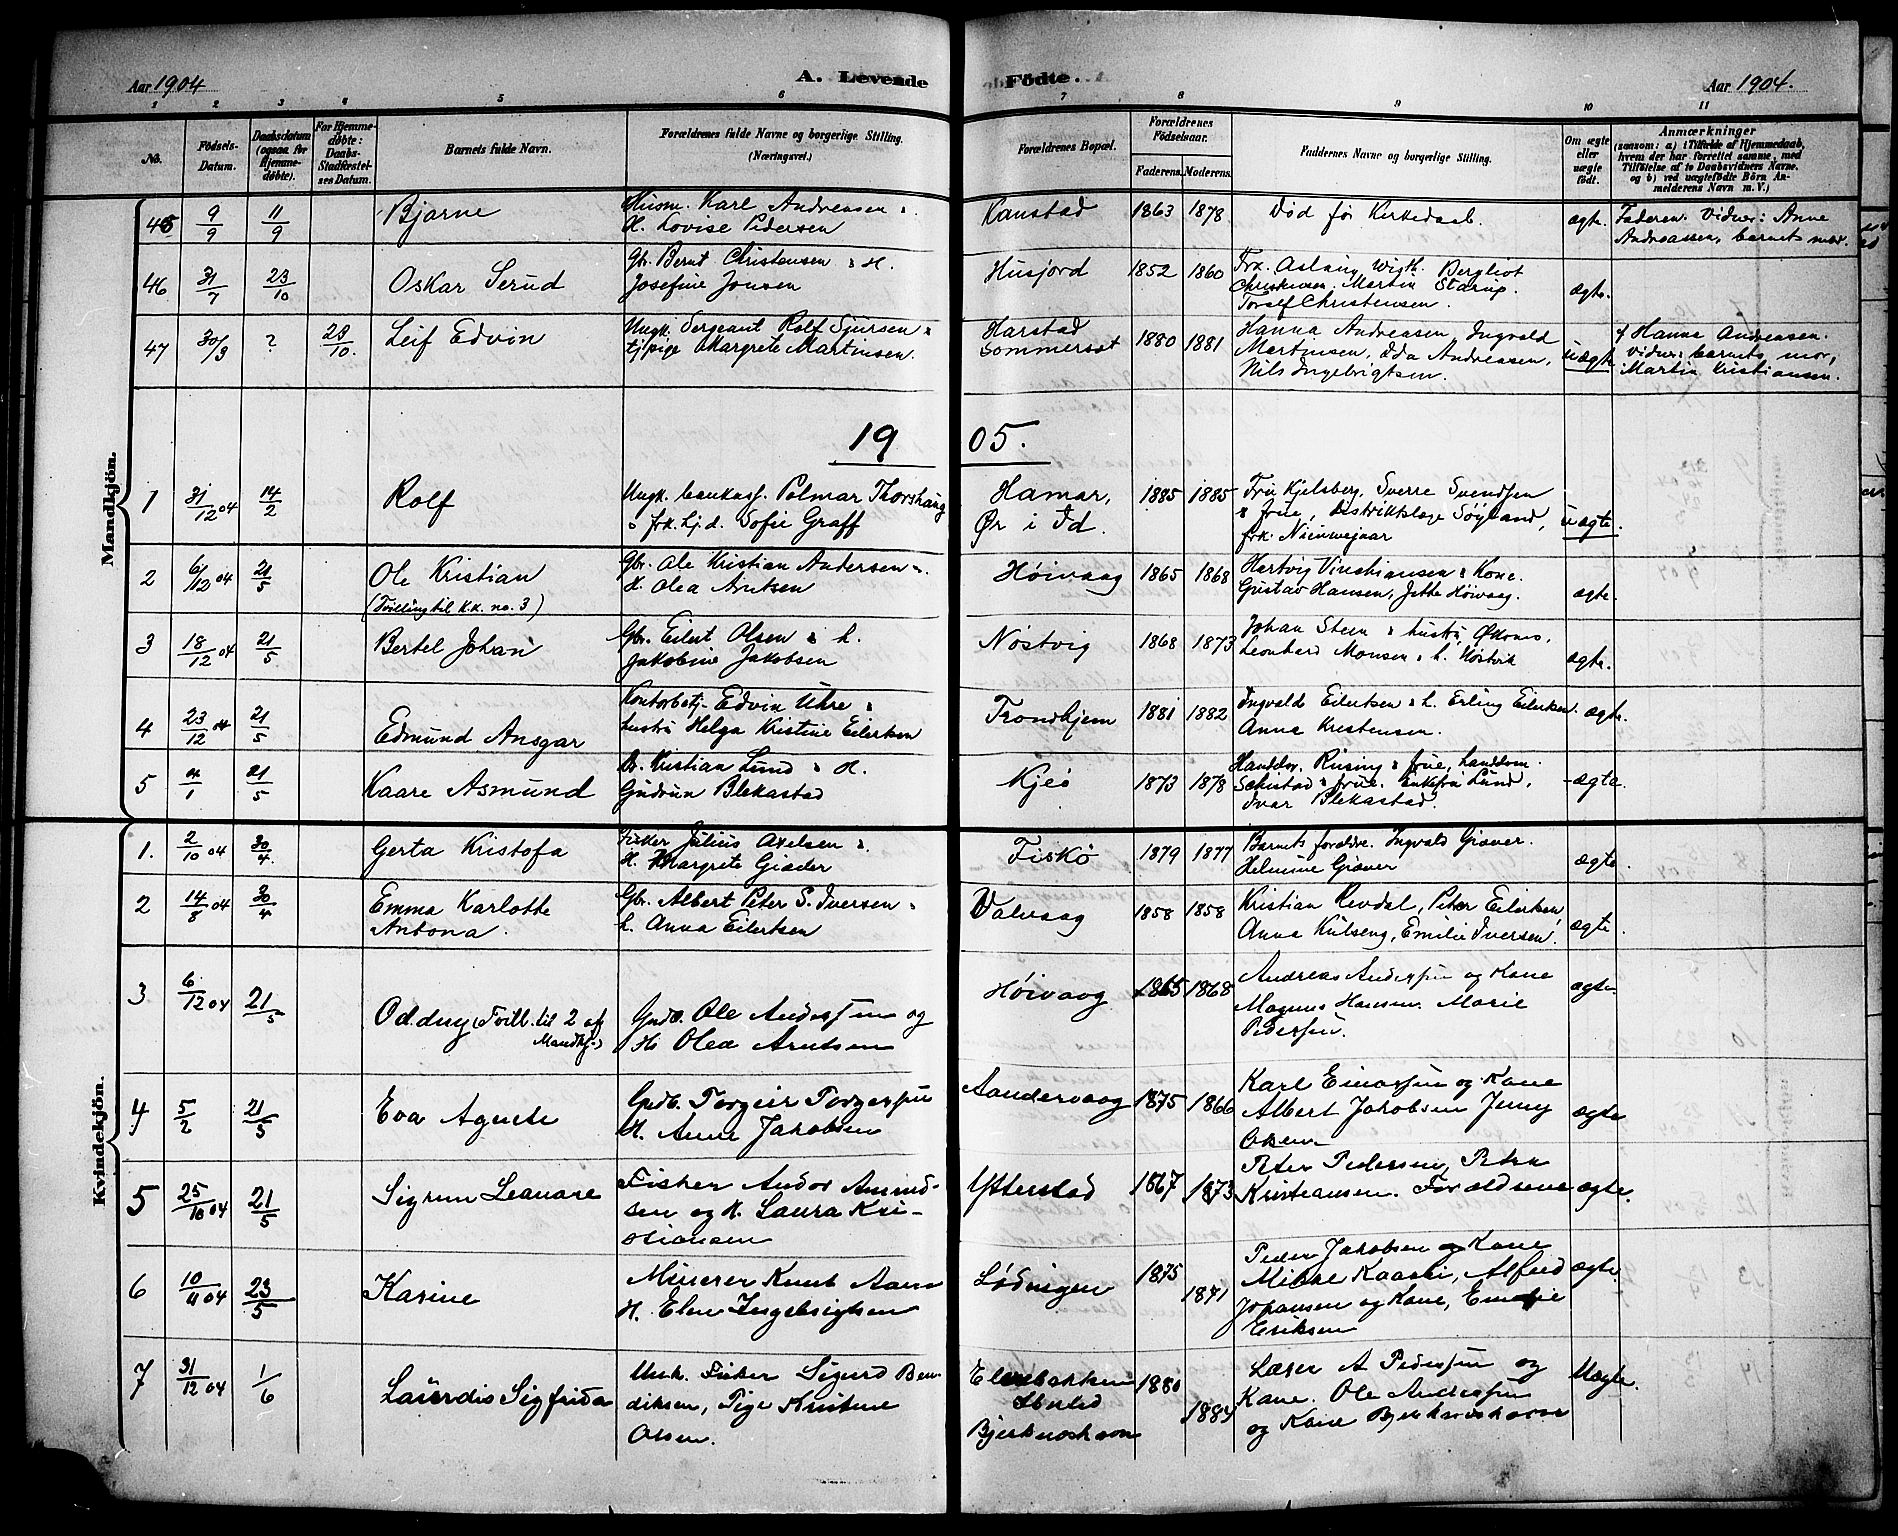 Aar 1904
A. Levende
Fødte.
Aar 1904.
1 2 3 4 5 6 7 8 9 10 11
No.
Fødsels-
Datum.
Daabsdatum
(ogsaa for
Hjemme-
døbte).
For Hjemme-
døbte:
Daabs-
Stadfæstel-
ses Datum.
Barnets fulde Navn.
Forældrenes fulde Navne og borgerlige Stilling.
(Næringsvei.)
Forældrenes Bopæl.
Forældrenes
Fødselsaar.
Faderens. Moderens.
Faddernes Navne og borgerlige Stilling.
Om ægte
eller
uægte
født.
Anmærkninger
(saasom: a) i Tilfælde af Hjemmedaab,
hvem der har forrettet samme, med
Tilføielse af to Daabsvidners Navne,
og b) ved uægtefødte Børn An-
melderens Navn m. V.)
Mandkjön.
45 9/9 11/9 Bjarne
Husm. Karl Andreasen &
H. Lovise Pedersen
Kanstad 1863 1878 Død før Kirkedaab. ægte. Faderen. Vidner: Anne
Andreassen, barnets mor.
46 31/7 23/10 Oskar Serud
Gbr. Bernt Christensen & H.
Josefine Jonsen
Husjord 1852 1860 Frk. Aslaug Wigth. Bergliot
Christensen. Martin Starup.
Toralf Christensen. ægte.
47 30/3 ? 23/10. Leif Edvin
Ungk. Sergeant Rolf Sjursen &
tj. pige Margrete Martinsen.
Harstad
Sommerset 1880 1881 Hanna Andreasen, Ingvald
Martinsen, Ida Andreasen,
Nils Ingebrigtsen. uægte
Hanna Andreasen.
Vidner: barnets mor,
Martin Kristiansen.
19 05.
1 31/12 04 14/2 Rolf
Ungk. bankass. Polmar Thorshaug
& frk. Sofie Graff
Hamar,
Ør i Id. 1885 1885 Fru Kjelsberg, Sverre Svendsen
& frue, Distriktslæge Søyland,
frk. Nieuwejaar uægte.
2 6/12 04 21/5 Ole Kristian
(Tvilling til K.K. no. 3)
Gbr. Ole Kristian Andersen &
H. Olea Arntsen
Høivaag 1865 1868 Hartvig Kristiansen & Kone.
Gustav Hansen, Jette Høivaag. ægte.
3 18/12 04 21/5 Bertel Johan
Gbr. Eilert Olsen & h.
Jakobine Jakobsen
Nøstvig 1868 1873 Johan Steen & hustru Øksnes,
Leonhard Monsen & h. Nøstvik ægte.
4 23/12 04 21/5 Edmund Ansgar
Kontorbetj. Edvin Uhre &
hustru Helga Kristine Eilertsen
Trondhjem 1881 1882 Ingvald Eilertsen & h. Erling Eilertsen.
Anna Kristensen. ægte.
5 4/1 21/5 Kaare Asmund
Kristian Lund & H.
Gudrun Blekastad
Kjeø 1873 1878 Handelsm. Rusing & frue, Landdom.
& frue. Enkefru Lund,
Ivar Blekastad. ægte.
Kvindekjön.
1. 2/10 04 30/4. Gerta Kristofa
Fisker Julius Axelsen &
H. Margrete Giæver
Fiskø 1879 1877 Barnets forældre. Ingvald Giæver.
Helmine Giæver ægte.
2 14/8 04 30/4 Emma Karlotte
Antona.
Gbr. Albert Peter S. Iversen &
h. Anna Eilertsen
Valvaag 1858 1858 Kristian Revdal, Peter Eilertsen,
Anna Kulseng, Emilie Iversen. ægte.
3 6/12 04 21/5 Oddny (Tvill. til 2 af
Mandkj.)
Gndb. Ole Anderssen og
H. Olea Arntsen
Høivaag 1865 1868 Andreas Anderssen og Kone
Magnus Hansen. Marie
Pedersen. ægte
4 5/2 21/5 Eva Agnete
Gndb. Torgeir Torgerssen
H. Anne Jakobsen
Sandervaag 1875 1866 Karl Einarssen og Kone
Albert Jakobsen Jenny
Olsen ægte
5 25/10 04 21/5 Sigrun Leanare
Fisker Andor Amund-
sen og H. Laura Kri-
stiansen
Ytterstad 1867 1873 Peter Pedersen, Petra
Kristiansen. Forældrene ægte.
6 10/11 04 23/5 Karine
Minerer Knut Aanes
H. Elen Ingebrigtsen
Lødingen 1875 1871 Peder Jakobsen og Kone
Mikal Kaarbi, Alfred
Johansen og Kone, Emelie
Eriksen ægte
7 31/12 04 1/6 Laurdis Sigfrida
Unk. Fisker Sigurd Ben-
diksen, Pige Kristine
Olsen.
Elvebakken
Ibestad
Bjerknoshavn 1880 1884 Lærer A Pedersen og
Kone. Ole Anderssen
og Kone Bjerknoshavn Uægte.